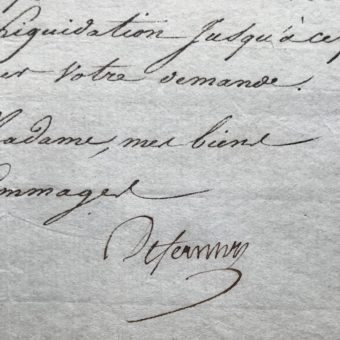 Liquidation jusqu'à ce
votre demande.
Madame, mes biens
hommages
Defermon